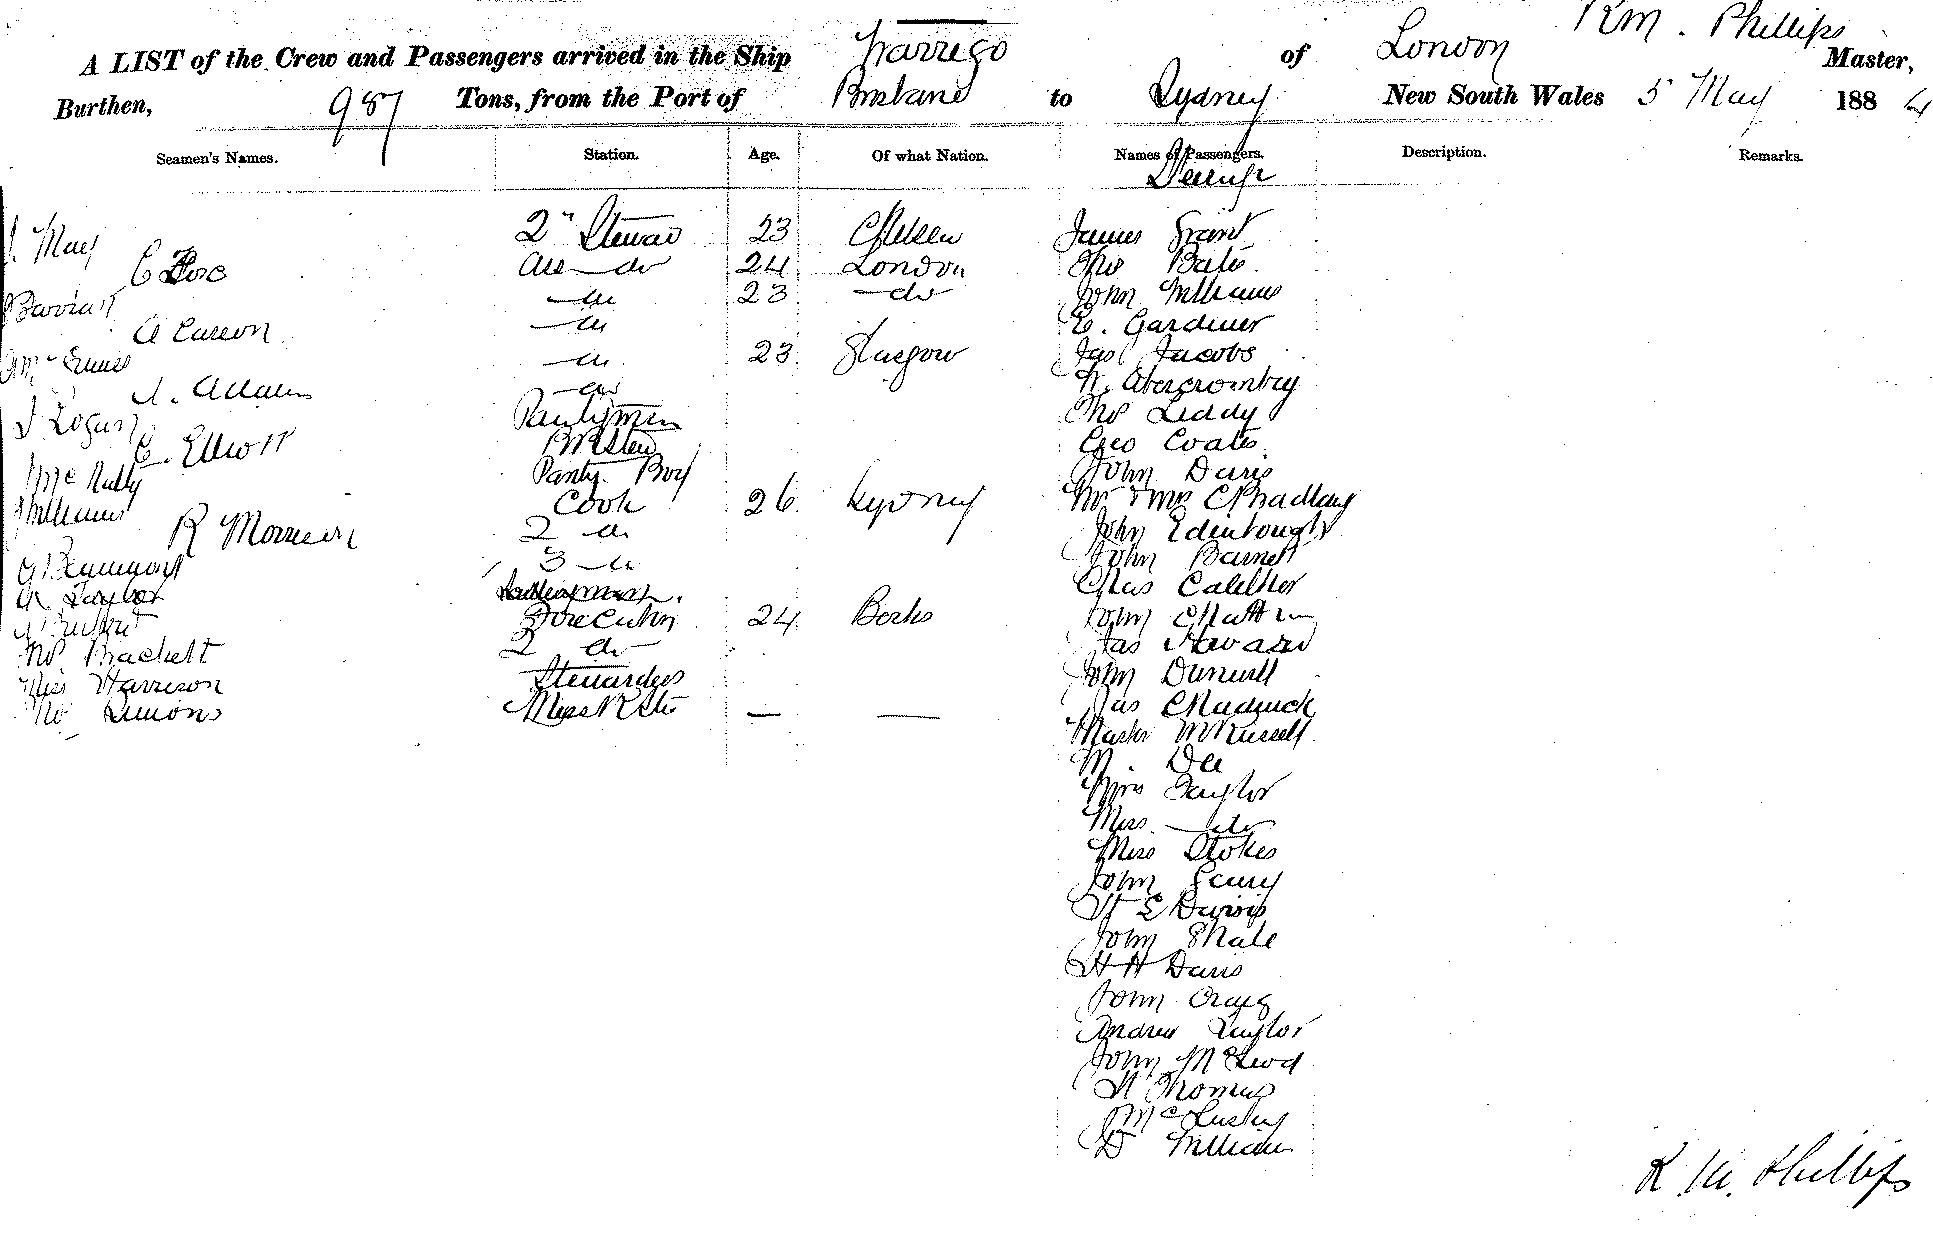 A LIST of the Crew and Passengers arrived in the Ship Warrego of London R M. Phillips Master,
Burthen, 987 Tons, from the Port of Brisbane to Sydney New South Wales 5 May 1884
Seamen's Names. Station. Age. Of what Nation. Names of Passengers. Description. Remarks.
Steerage
J. May 2nd Steward 23 Chelsea James Grant
C do 24 London Thos Bates
23 do John Williams
A Carson E. Gardiner
23 Glasgow Jas Jacobs
J. Adams do W. Abercromby
J Logan Pantryman Thos Liddy
E. Elliott Geo Coates
McNally Pantry Boy John Davis
Williams Cook 26 Sydney Mr & Mrs C Bradley
R Morrison 2 do John Edinborough
G Beaumont 3 do John Barnett
A Taylor Chas
24 Berks John
Mrs Brackett 2 do Jas Howard
Miss Harrison Stewardess John
Mrs Simons — — Jas Chadwick
Master W Russell
M. Dee
Mrs Taylor
Miss do
Miss Stokes
John Geary
W E Davis
John Shale
H H Davis
John Craig
Andrew Taylor
John McLeod
H Thomas
J McLusky
D Williams
R. M. Phillips